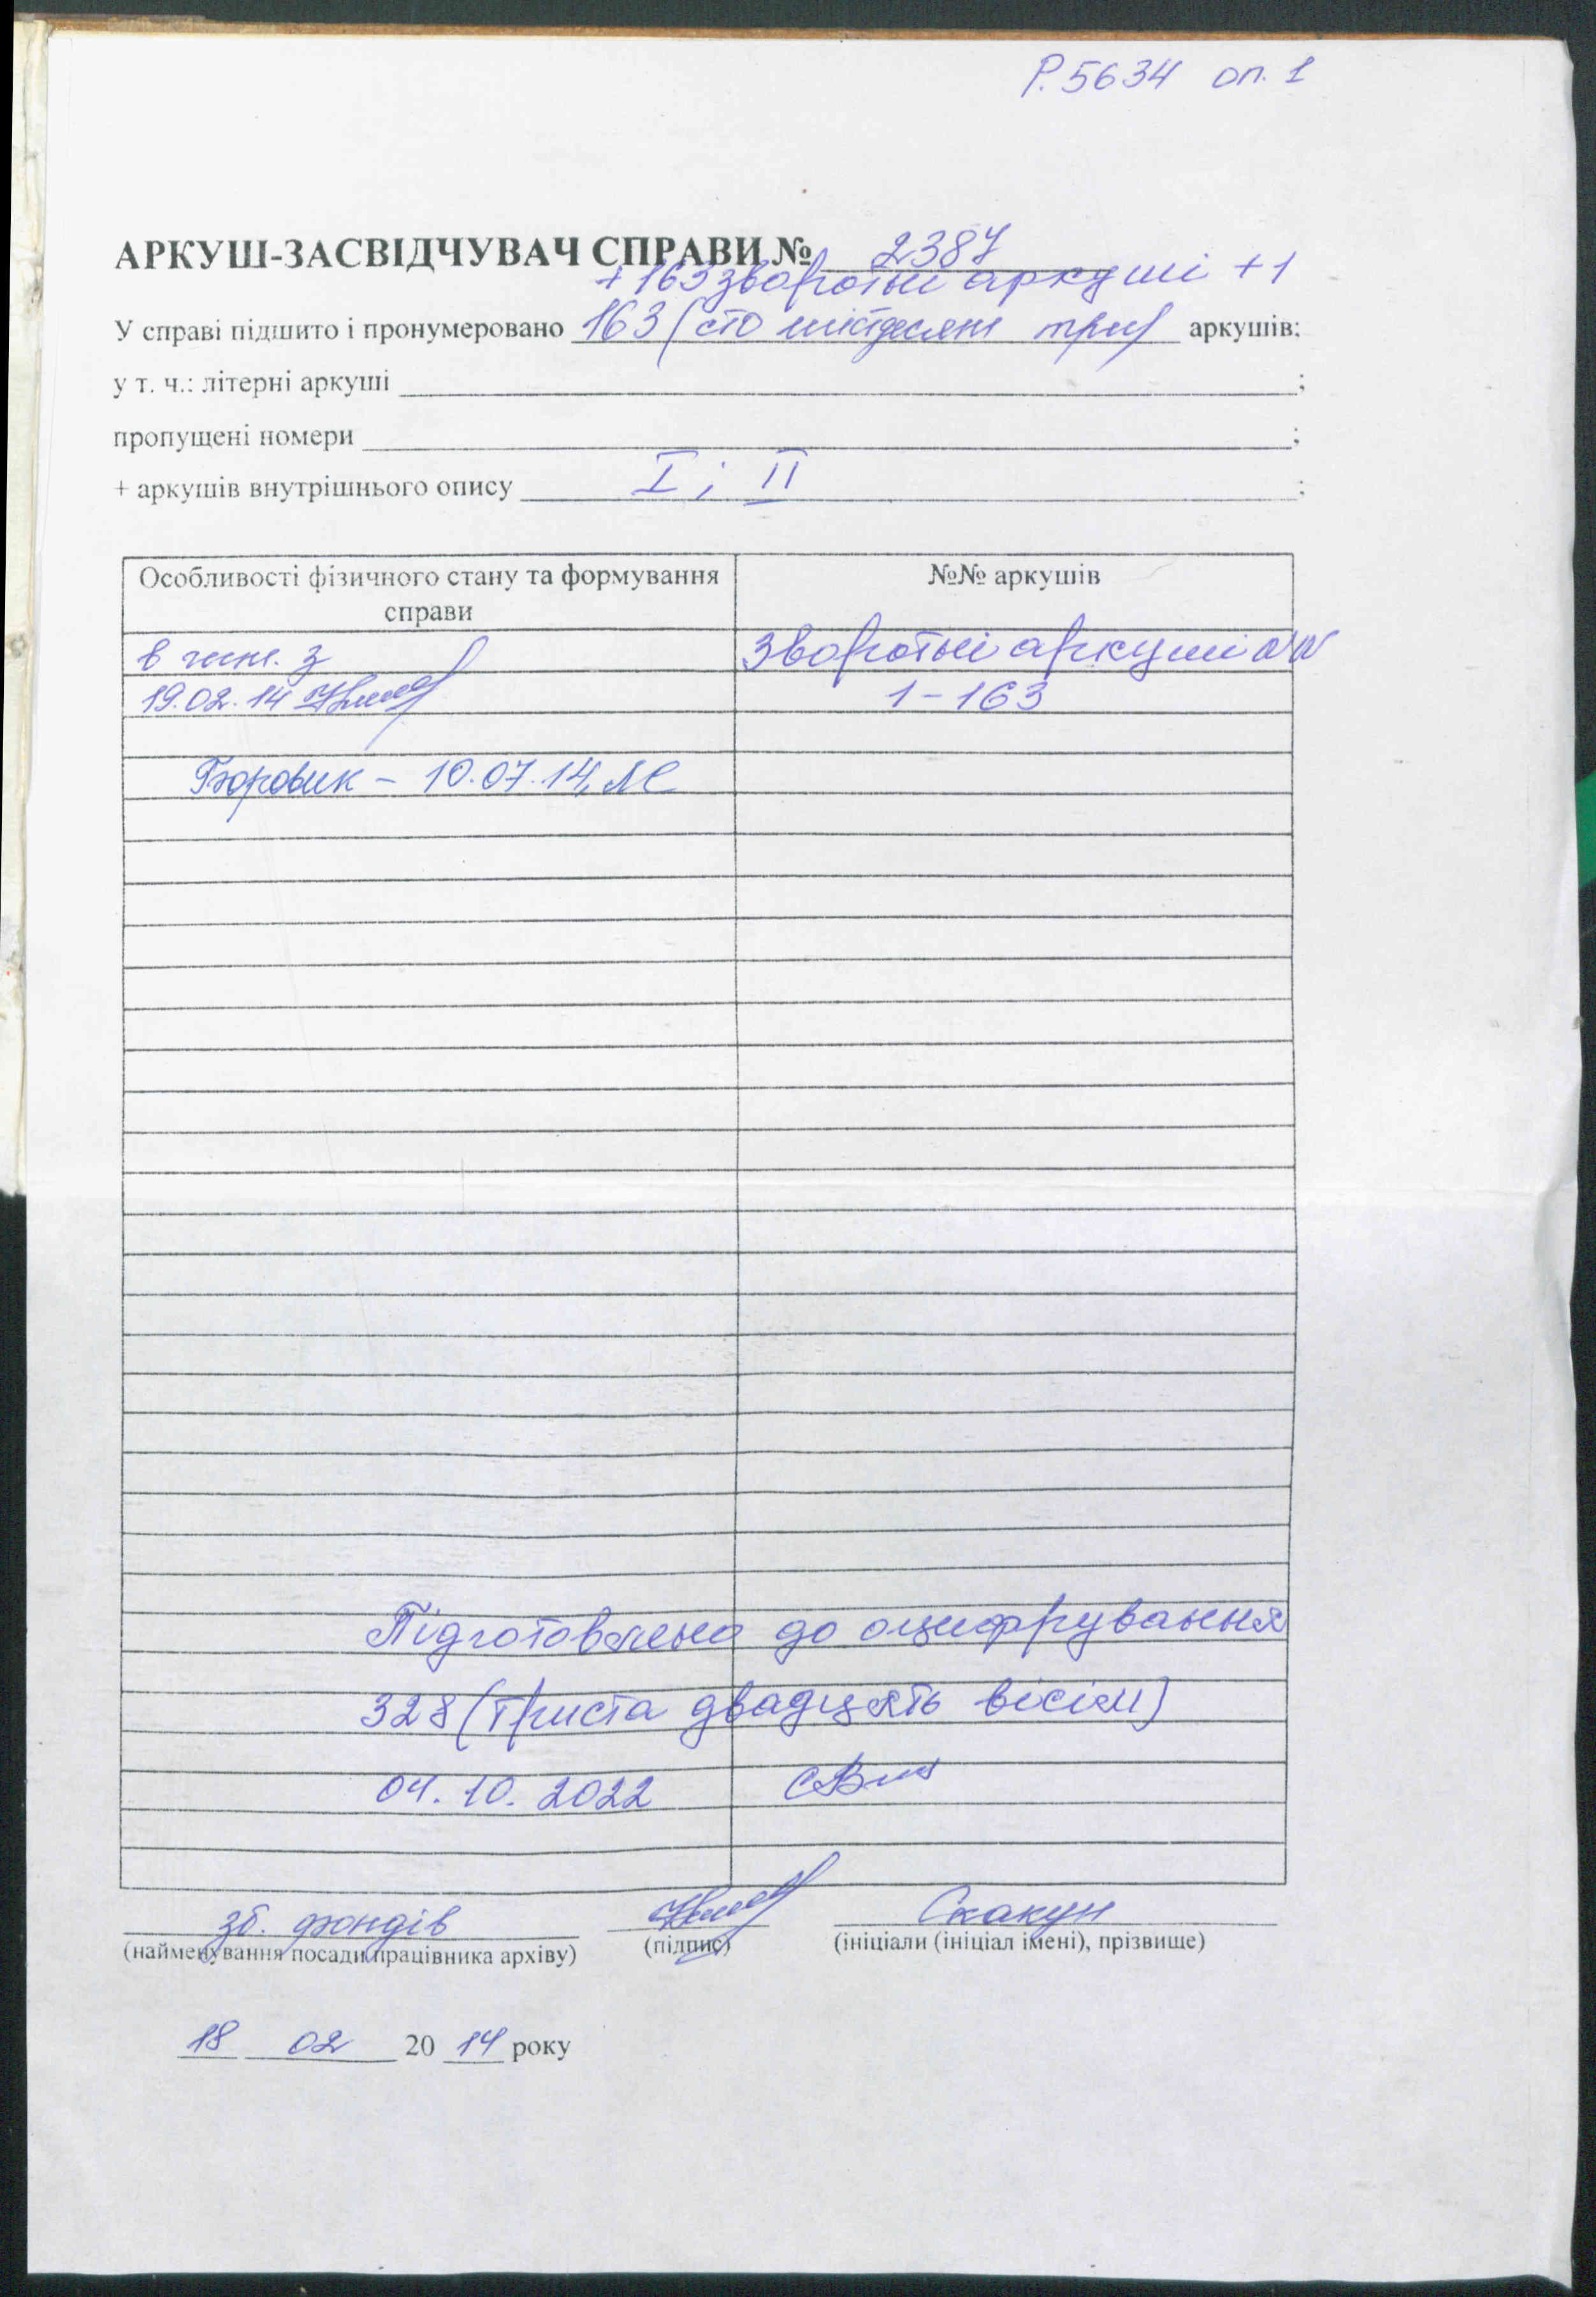 Р.5634 оп. 1
АРКУШ-ЗАСВІДЧУВАЧ СПРАВИ № 2387
+ 163 зворотні аркуші + 1
У справі підшито і пронумеровано 163 (сто шістдесят три) аркушів;
у т. ч.: літерні аркуші ;
пропущені номери ;
+ аркушів внутрішнього опису I і II ;
Особливості фізичного стану та формування справи
№№ аркушів
в чит. з
Зворотні аркуші №№
19.02.14
1-163
Боровик – 10.07.14,
Підготовлено до оцифрування
328 (триста двадцять вісім)
04.10.2022
зб. фондів
Скакун
(найменування посади працівника архіву)
(підпис)
(ініціали (ініціал імені), прізвище)
18 02 20 14 року